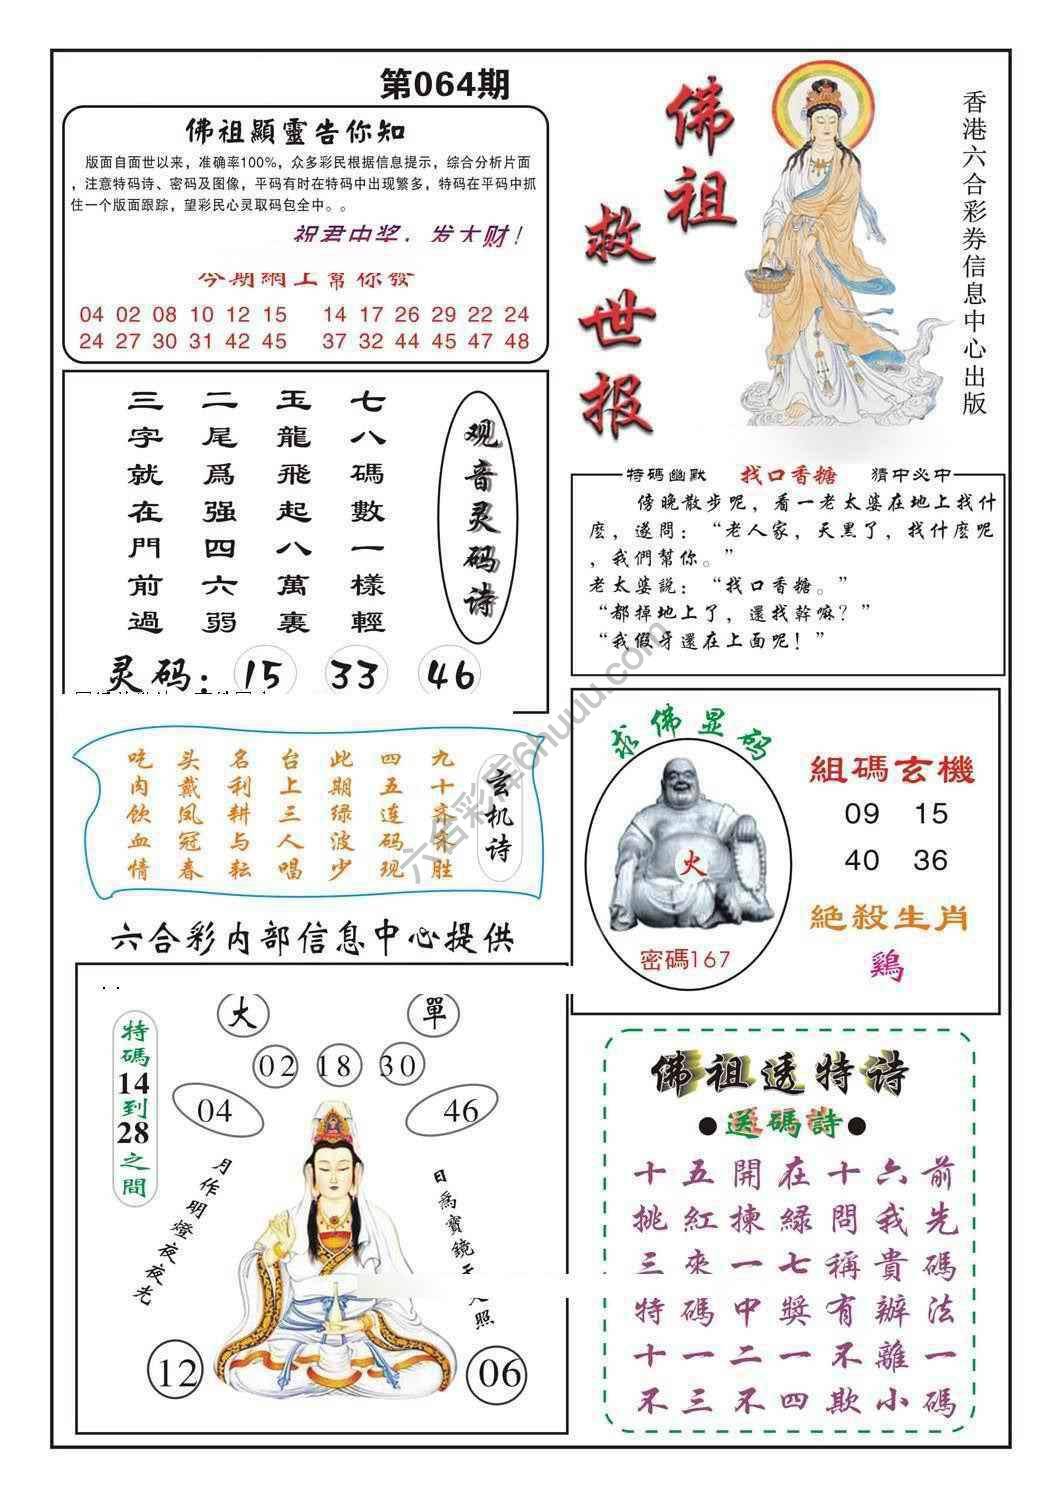 第064期
佛祖顯靈告你知
版面自面世以来，准确率100%，众多彩民根据信息提示，综合分析片面
，注意特码诗、密码及图像，平码有时在特码中出现繁多，特码在平码中抓
住一个版面跟踪，望彩民心灵取码包全中。。
祝君中奖，发大财！
今期網上幫你發
04 02 08 10 12 15 14 17 26 29 22 24
24 27 30 31 42 45 37 32 44 45 47 48
佛祖
救世报
香港六合彩券信息中心出版
观音灵码诗
七八碼數一樣輕
玉龍飛起八萬裏
二尾爲强四六弱
三字就在門前過
灵码：15 33 46
特碼幽默 找口香糖 猜中必中
傍晚散步呢，看一老太婆在地上找什
麽，遂問：“老人家，天黑了，找什麽呢
，我們幫你。”
老太婆説：“找口香糖。”
“都掉地上了，還找幹嘛？”
“我假牙還在上面呢！”
玄机诗
九十齐来胜
四五连码现
此期绿波少
台上三人唱
名利耕与耘
头戴凤冠春
吃肉饮血情
求佛显码
火
密碼167
組碼玄機
09 15
40 36
絕殺生肖
鷄
六合彩内部信息中心提供
大 單
02 18 30
04 46
特碼14到28之間
月作明燈夜夜光
日爲寶鏡
照
12 06
佛祖透特诗
●送碼詩●
十五開在十六前
挑紅揀緑問我先
三來一七稱貴碼
特碼中獎有辦法
十一二一不離一
不三不四欺小碼
六合彩库6huuu.com